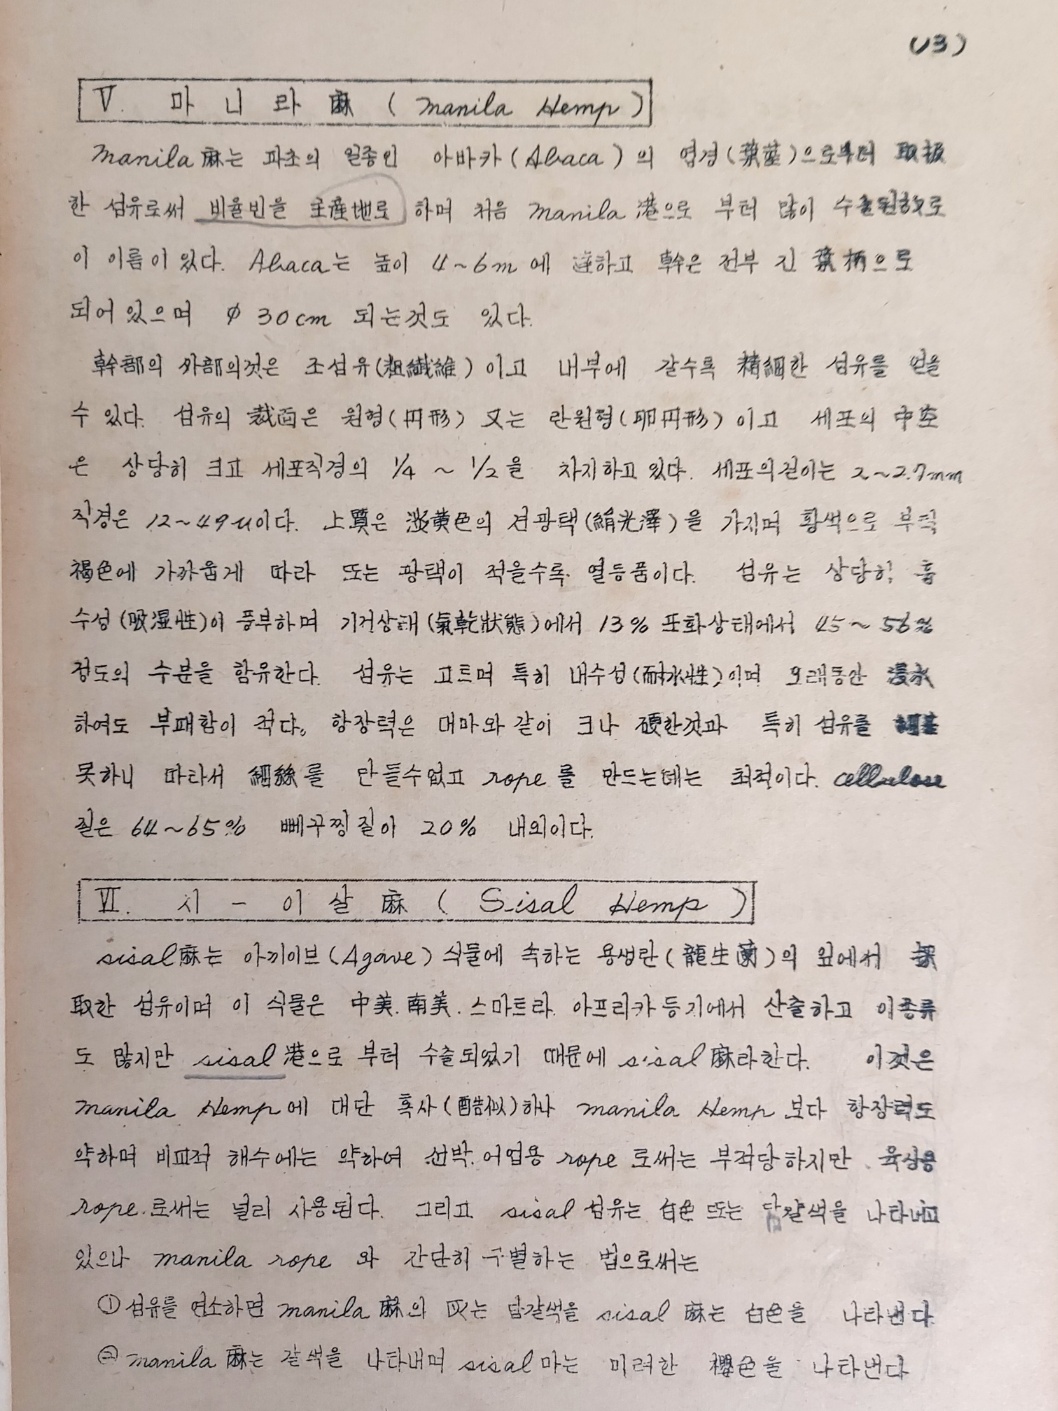 (13)
V. 마니라 麻 ( manila Hemp )
manila 麻는 파초의 일종인 아바카(Abaca)의 엽경(葉莖)으로부터 取扱
한 섬유로써 비율빈을 主産地로 하며 처음 manila 港으로 부터 많이 수출된하므로
이 이름이 있다. Abaca는 높이 4~6m 에 達하고 幹은 전부 긴 葉柄으로
되어 있으며 φ 30cm 되는것도 있다.
幹部의 外部의것은 조섬유(粗纖維)이고 내부에 갈수록 精細한 섬유를 얻을
수 있다. 섬유의 截面은 원형(円形) 又는 란원형(卵円形)이고 세포의 中空
은 상당히 크고 세포직경의 1/4 ~ 1/2을 차지하고 있다. 세포의길이는 2~2.7mm
직경은 12~49u이다. 上質은 淡黄色의 견광택(絹光澤)을 가지며 황색으로 부터
褐色에 가까웁게 따라 또는 광택이 적을수록 열등품이다. 섬유는 상당히 흡
수성(吸湿性)이 풍부하며 기건상태(氣乾狀態)에서 13% 포화상태에서 45~56%
정도의 수분을 함유한다. 섬유는 고트며 특히 내수성(耐水性)이며 오래동안 浸水
하여도 부패함이 적다. 항장력은 대마와 같이 크나 硬한것과 특히 섬유를
못하니 따라서 細絲를 만들수없고 rope를 만드는데는 최적이다. cellulose
질은 64~65% 뻬꾸찡질이 20% 내외이다.
VI. 시-이살麻 ( Sisal Hemp )
sisal麻는 아끼이브(Agave) 식물에 속하는 용생란(龍生蘭)의 잎에서 採
取한 섬유이며 이 식물은 中美. 南美. 스마트라. 아프리카등기에서 산출하고 이종류
도 많지만 sisal 港으로 부터 수출되었기 때문에 sisal 麻라한다. 이것은
manila Hemp에 대단 혹사(酷似)하나 manila Hemp 보다 항장력도
약하며 비교적 해수에는 약하여 선박.어업용 rope 로써는 부적당하지만 육상용
rope.로써는 널리 사용된다. 그리고 sisal 섬유는 白色 또는 담갈색을 나타내고
있으나 manila rope 와 간단히 구별하는 법으로써는
① 섬유를 연소하면 manila 麻의 灰는 담갈색을 sisal 麻는 白色을 나타낸다.
㊁ manila 麻는 갈색을 나타내며 sisal마는 미려한 櫻色을 나타낸다